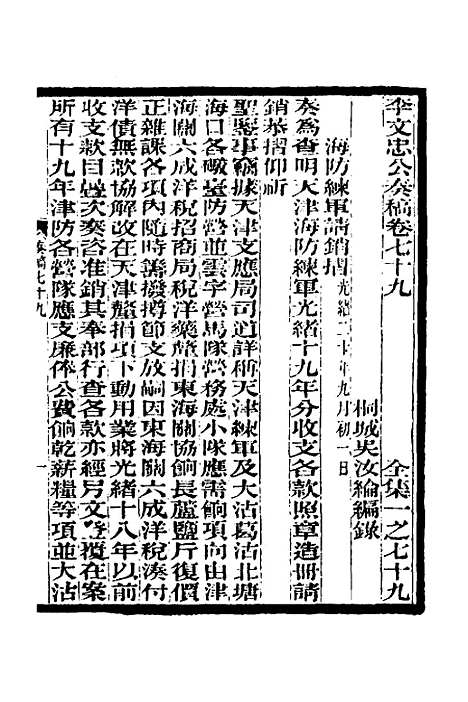 李文忠公奏稿卷七十九　全集一之七十九
桐城吳汝綸編錄
海防練軍請銷摺光緒二十年九月初一日
奏為查明天津海防練軍光緒十九年分收支各款照章造冊請
銷恭摺仰祈
聖鑒事竊據天津支應局司道詳稱天津練軍及大沽葛沽北塘
海口各礮臺防營並雲字營馬隊營務處小隊應需餉項向由津
海關六成洋稅招商局稅洋藥釐捐東海關協餉長蘆鹽斤復價
正雜課各項內隨時籌撥撙節支放嗣因東海關六成洋稅湊付
洋債無款協解改在天津釐捐項下動用業將光緒十八年以前
收支款目疊次奏咨准銷其奉部行查各款亦經另文登覆在案
所有十九年津防各營隊應支廉俸公費餉乾薪糧等項並大沽
奏稿七十九
一